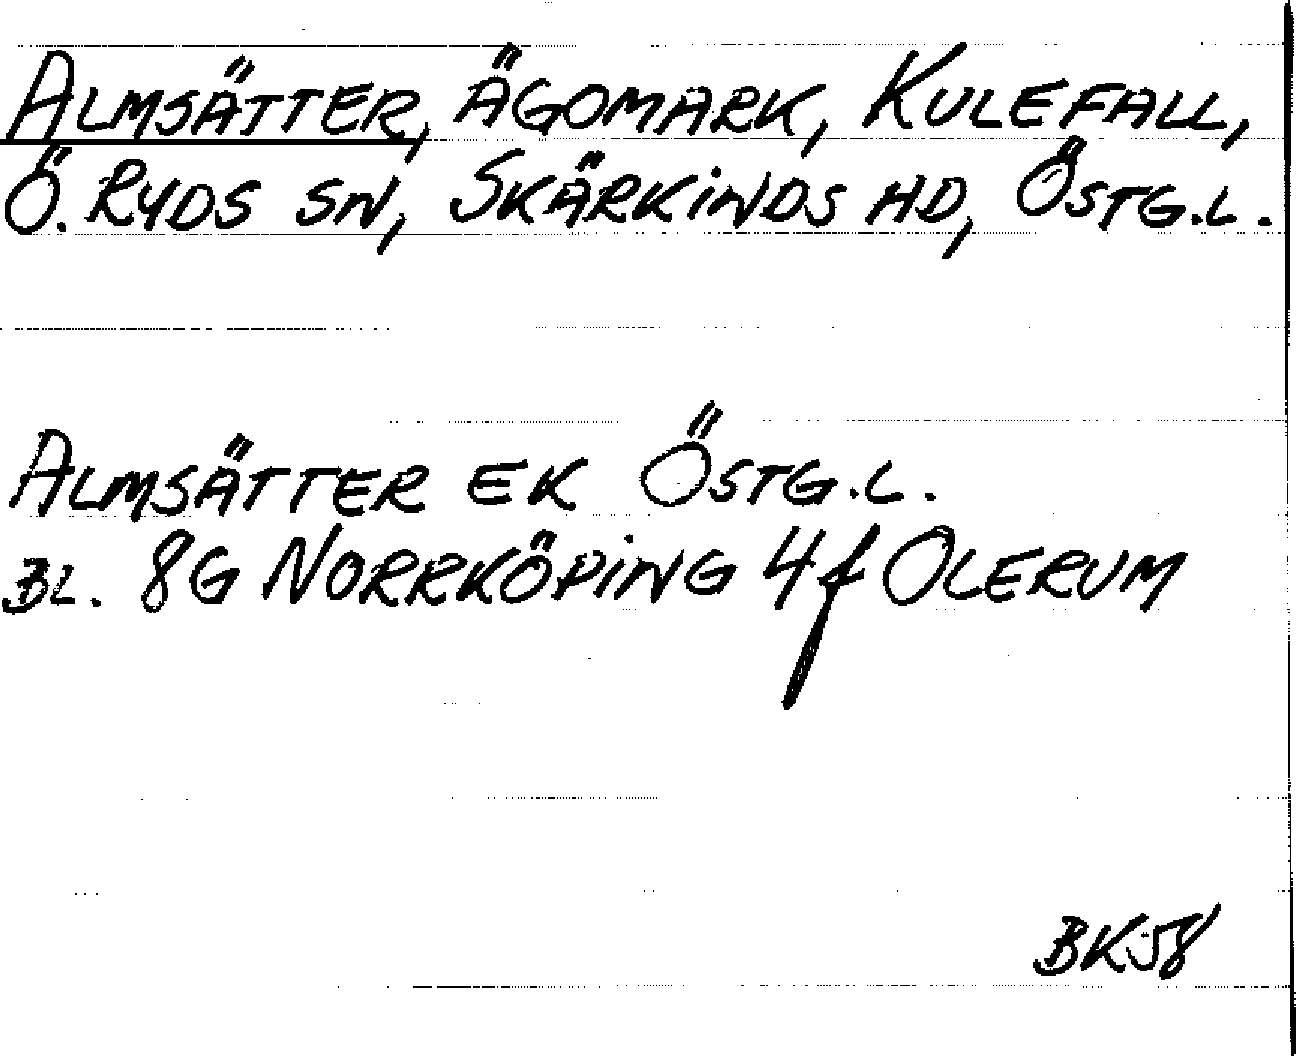 ALMSÄTTER, ÄGOMARK, KULEFALL,
Ö. RYDS SN, SKÄRKINDS HD, ÖSTG.L.
ALMSÄTTER EK ÖSTG.L.
BL. 8G NORRKÖPING 4f OLERUM
BK58